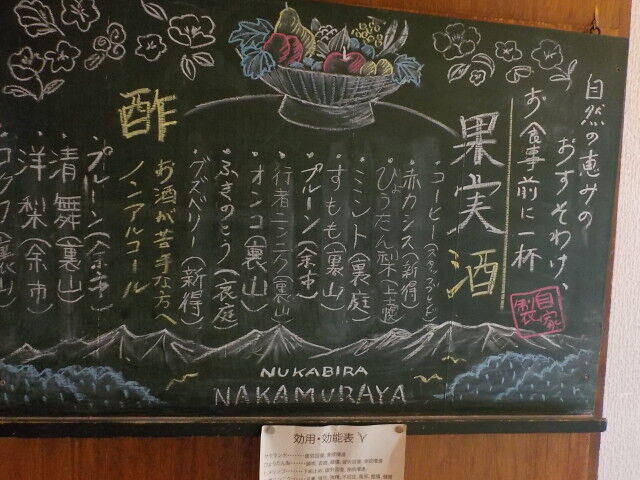 自然の恵みの
おすそわけ、
お食事前に一杯
自家製
果実酒
・コーヒー(スタッフブレンド)
・赤カシス(新得)
・ひょうたん梨(上士幌)
・ミント(裏庭)
・すもも(裏山)
・プルーン(余市)
・行者ニンニク(裏山)
・オンコ(裏山)
・ふきのとう(裏庭)
・グズベリー(新得)
酢
お酒が苦手な方へ
ノンアルコール
・プルーン(余市)
・清舞(裏山)
・洋梨(余市)
NUKABIRA
NAKAMURAYA
効用・効能表